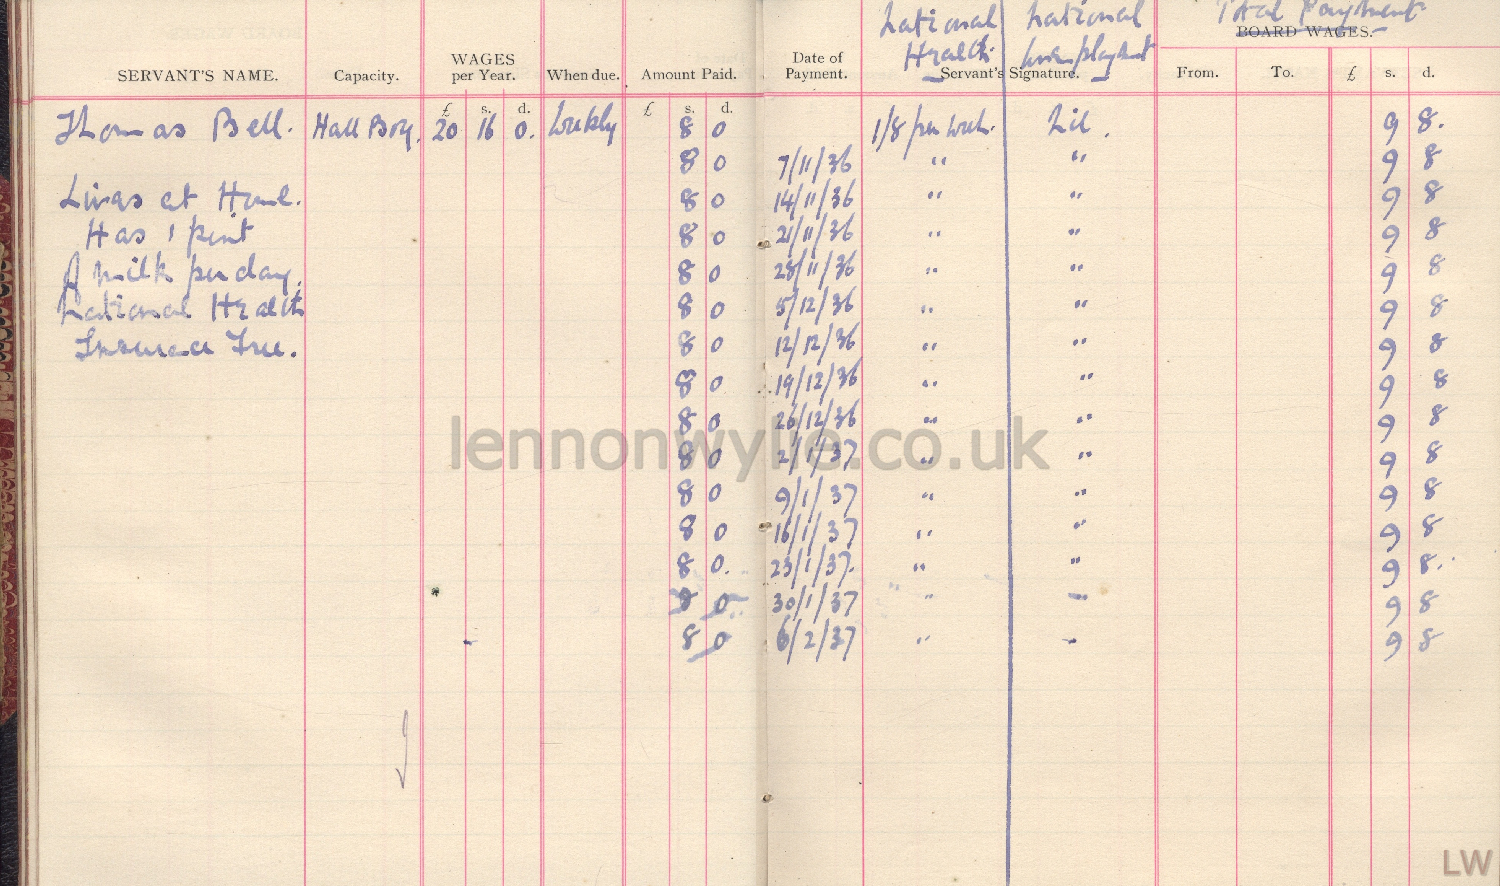 National National Total Payment
Health Unemployment BOARD WAGES.
SERVANT'S NAME. Capacity. WAGES per Year. When due. Amount Paid. Date of Payment. Servant's Signature. From. To. £ s. d.
£ s. d. £ s. d.
Thomas Bell. Hall Boy. 20 16 0. Weekly 8 0 1/8 per week. Nil. 9 8.
8 0 7/11/36 " " 9 8
Lives at Home. 8 0 14/11/36 " " 9 8
Has 1 pint 8 0 21/11/36 " " 9 8
of milk per day. 8 0 28/11/36 " " 9 8
National Health 8 0 5/12/36 " " 9 8
Insurance Free. 8 0 12/12/36 " " 9 8
8 0 19/12/36 " " 9 8
8 0 26/12/36 " " 9 8
lennonwylie.co.uk
8 0 2/1/37 " " 9 8
8 0 9/1/37 " " 9 8
8 0 16/1/37 " " 9 8
8 0. 23/1/37. " " 9 8.
8 0 30/1/37 " " 9 8
8 0 6/2/37 " " 9 8
LW